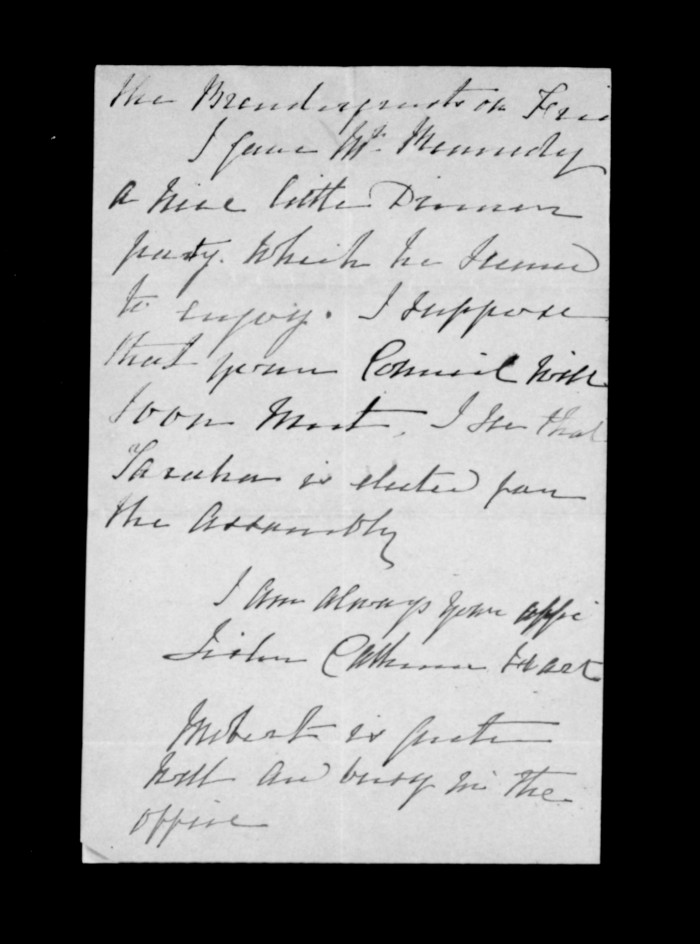 the Prendergrasts on Frid
I gave Mr. Kennedy
a nice little Dinner
party. Which he seemed
to enjoy. I suppose
that your Council will
soon meet. I see that
Tareha is elected for
the Assembly
I am always your affe
Sister Catherine Hart
Robert is quite
well and busy in the
office